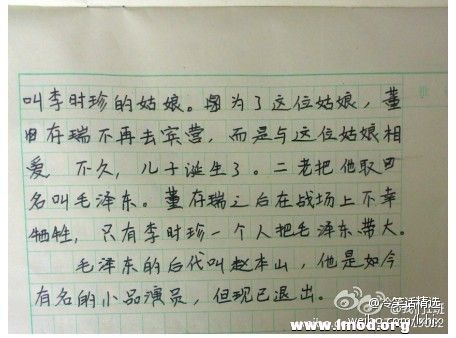 叫李时珍的姑娘。因为了这位姑娘，董
田存瑞不再去宾营，而是与这位姑娘相
爱 不久，儿子诞生了。二老把他取田
名叫毛泽东。董存瑞之后在战场上不幸
牺牲，只有李时珍一个人把毛泽东带大。
毛泽东的后代叫赵本山，他是如今
有名的小品演员，但现已退出。
@冷笑话精选
www.1mod.org